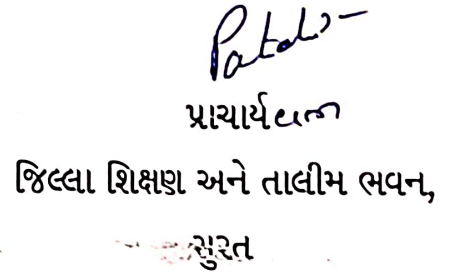 પ્રાચાર્ય
જિલ્લા શિક્ષણ અને તાલીમ ભવન,
સુરત